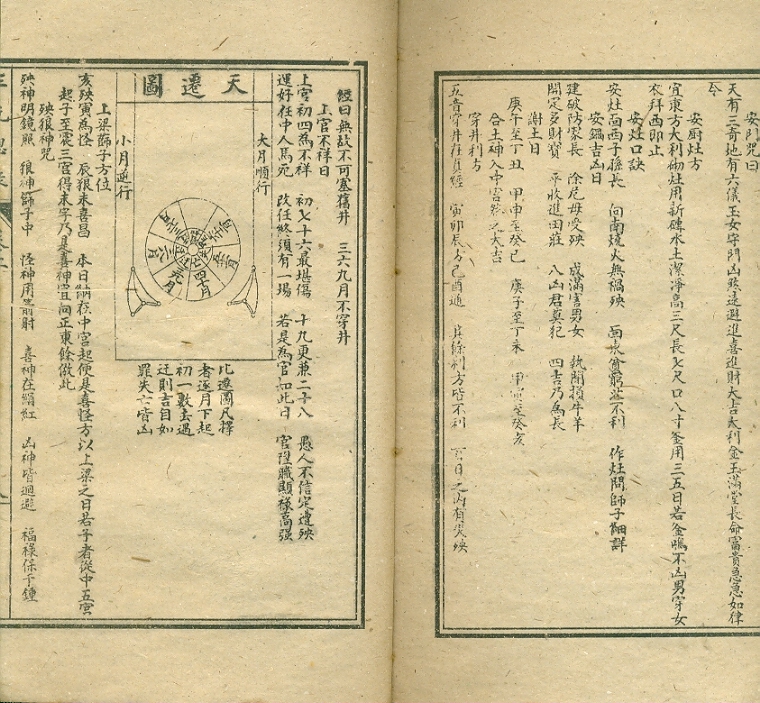 安門咒曰
天有三奇地有六儀玉女守門凶殃遠避進喜進財大吉大利金玉滿堂長命富貴急急如律
令
安厨灶方
宜東方大利砌灶用新磚水土潔淨高三尺長七尺口八寸釜用三五日若金鳴不凶男穿女
衣拜西即止
安灶口訣
安灶面西子孫長 向南燒火無禍殃 作灶問師子細詳
安鍋吉凶日
建破防家長 除尼母受殃 成滿害男女 執閉損牛羊
開定多財寶 平收進田莊 八凶君莫犯 四吉乃爲長
謝土日
庚午至丁丑 甲申至癸巳 庚子至丁未 甲寅至癸亥
合土神入中宮 之大吉
穿井利方
五音穿井在 寅卯辰方巳酉通 方皆不利
經曰無故不可塞舊井 三六九月不穿井
上官不祥日
上官初四爲不祥 初七十六最堪傷 十九更兼二十八 愚人不信定遭殃
運好任中人馬死 改任終須有一場 若是爲官知此日 官陞職顯祿高强
天遷圖
大月順行
小月逆行
此遷圖凡擇
者逐月下起
初一數去遇
迁則吉自如
罪失亡皆凶
上梁篩子方位
亥殃寅爲怪 辰狼未喜昌 本日納在中宮起便是喜怪方以上梁之日若子者從中五宮
起子至震三宮得未字乃是喜神宜向正東餘倣此
殃狼神咒
殃神明鏡照 狼神篩子中 怪神用箭射 喜神在絹紅 凶神皆迴避 福祿保千鍾